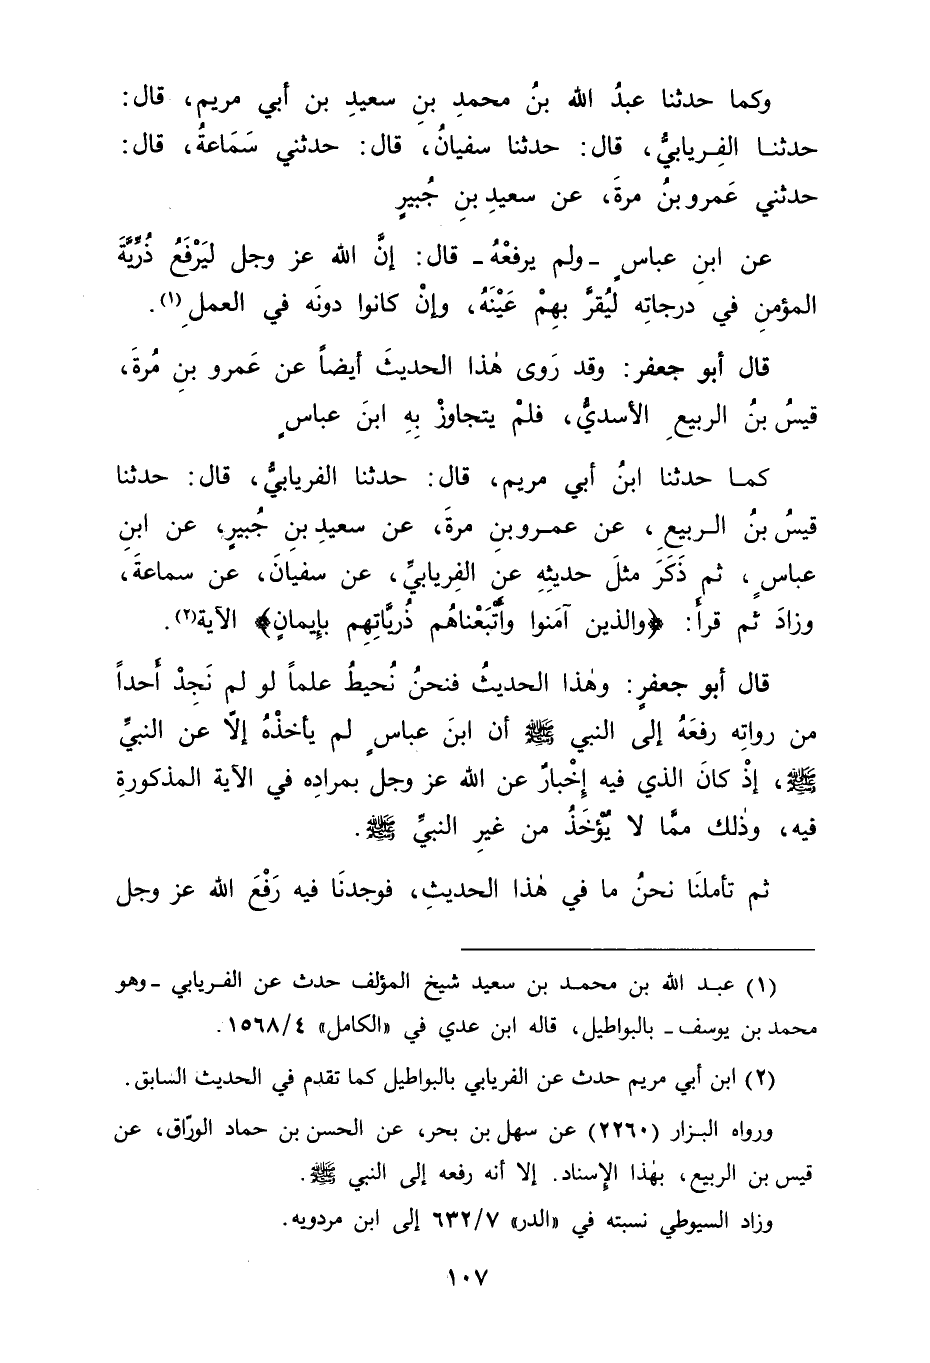 وكما حدثنا عبدُ الله بنُ محمدِ بنِ سعيدِ بن أبي مريم، قال:
حدثنا الفِريابيُّ، قال: حدثنا سفيانُ، قال: حدثني سَمَاعةُ، قال:
حدثني عَمرو بنُ مرةَ، عن سعيدِ بنِ جُبيرٍ
عن ابنِ عباسٍ ـ ولم يرفعْهُ ـ قال: إنَّ الله عز وجل ليَرْفَعُ ذُرِّيَّةَ
المؤمنِ في درجاتِه ليُقرَّ بهِمْ عَيْنَهُ، وإنْ كانوا دونَه في العملِ(١).
قال أبو جعفر: وقد رَوى هٰذا الحديثَ أيضاً عن عَمرو بنِ مُرةَ،
قيسُ بنُ الربيعِ الأسديُّ، فلمْ يتجاوزْ بِهِ ابنَ عباسٍ
كما حدثنا ابنُ أبي مريم، قال: حدثنا الفريابيُّ، قال: حدثنا
قيسُ بنُ الربيعِ، عن عمرو بنِ مرةَ، عن سعيدِ بنِ جُبيرٍ، عن ابنِ
عباسٍ، ثم ذَكَرَ مثلَ حديثِهِ عن الفِريابيِّ، عن سفيانَ، عن سماعةَ،
وزادَ ثم قرأَ: ﴿والذين آمَنوا وأَتْبَعْناهُم ذُرِّيَّاتِهِم بإِيمانٍ﴾ الآية(٢).
قال أبو جعفرٍ: وهٰذا الحديثُ فنحنُ نُحيطُ علماً لو لم نَجِدْ أَحداً
من رواتِه رفعَهُ إلى النبي ﷺ أن ابنَ عباسٍ لم يأخذْهُ إلّا عن النبيِّ
ﷺ، إذْ كانَ الذي فيه إِخْبارٌ عن الله عز وجل بمرادِه في الآية المذكورةِ
فيه، وذٰلك ممَّا لا يُؤْخَذُ من غيرِ النبيِّ ﷺ.
ثم تأملنَا نحنُ ما في هٰذا الحديثِ، فوجدنَا فيه رَفْعَ الله عز وجل
(١) عبد الله بن محمد بن سعيد شيخ المؤلف حدث عن الفريابي ـ وهو
محمد بن يوسف ـ بالبواطيل، قاله ابن عدي في «الكامل» ١٥٦٨/٤.
(٢) ابن أبي مريم حدث عن الفريابي بالبواطيل كما تقدم في الحديث السابق.
ورواه البزار (٢٢٦٠) عن سهل بن بحر، عن الحسن بن حماد الورّاق، عن
قيس بن الربيع، بهٰذا الإسناد. إلا أنه رفعه إلى النبي ﷺ.
وزاد السيوطي نسبته في «الدر» ٦٣٢/٧ إلى ابن مردويه.
١٠٧